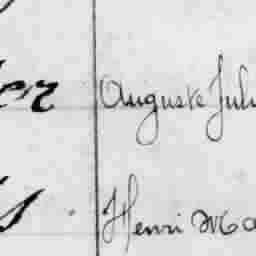 er Auguste Jul
s Henri Ma